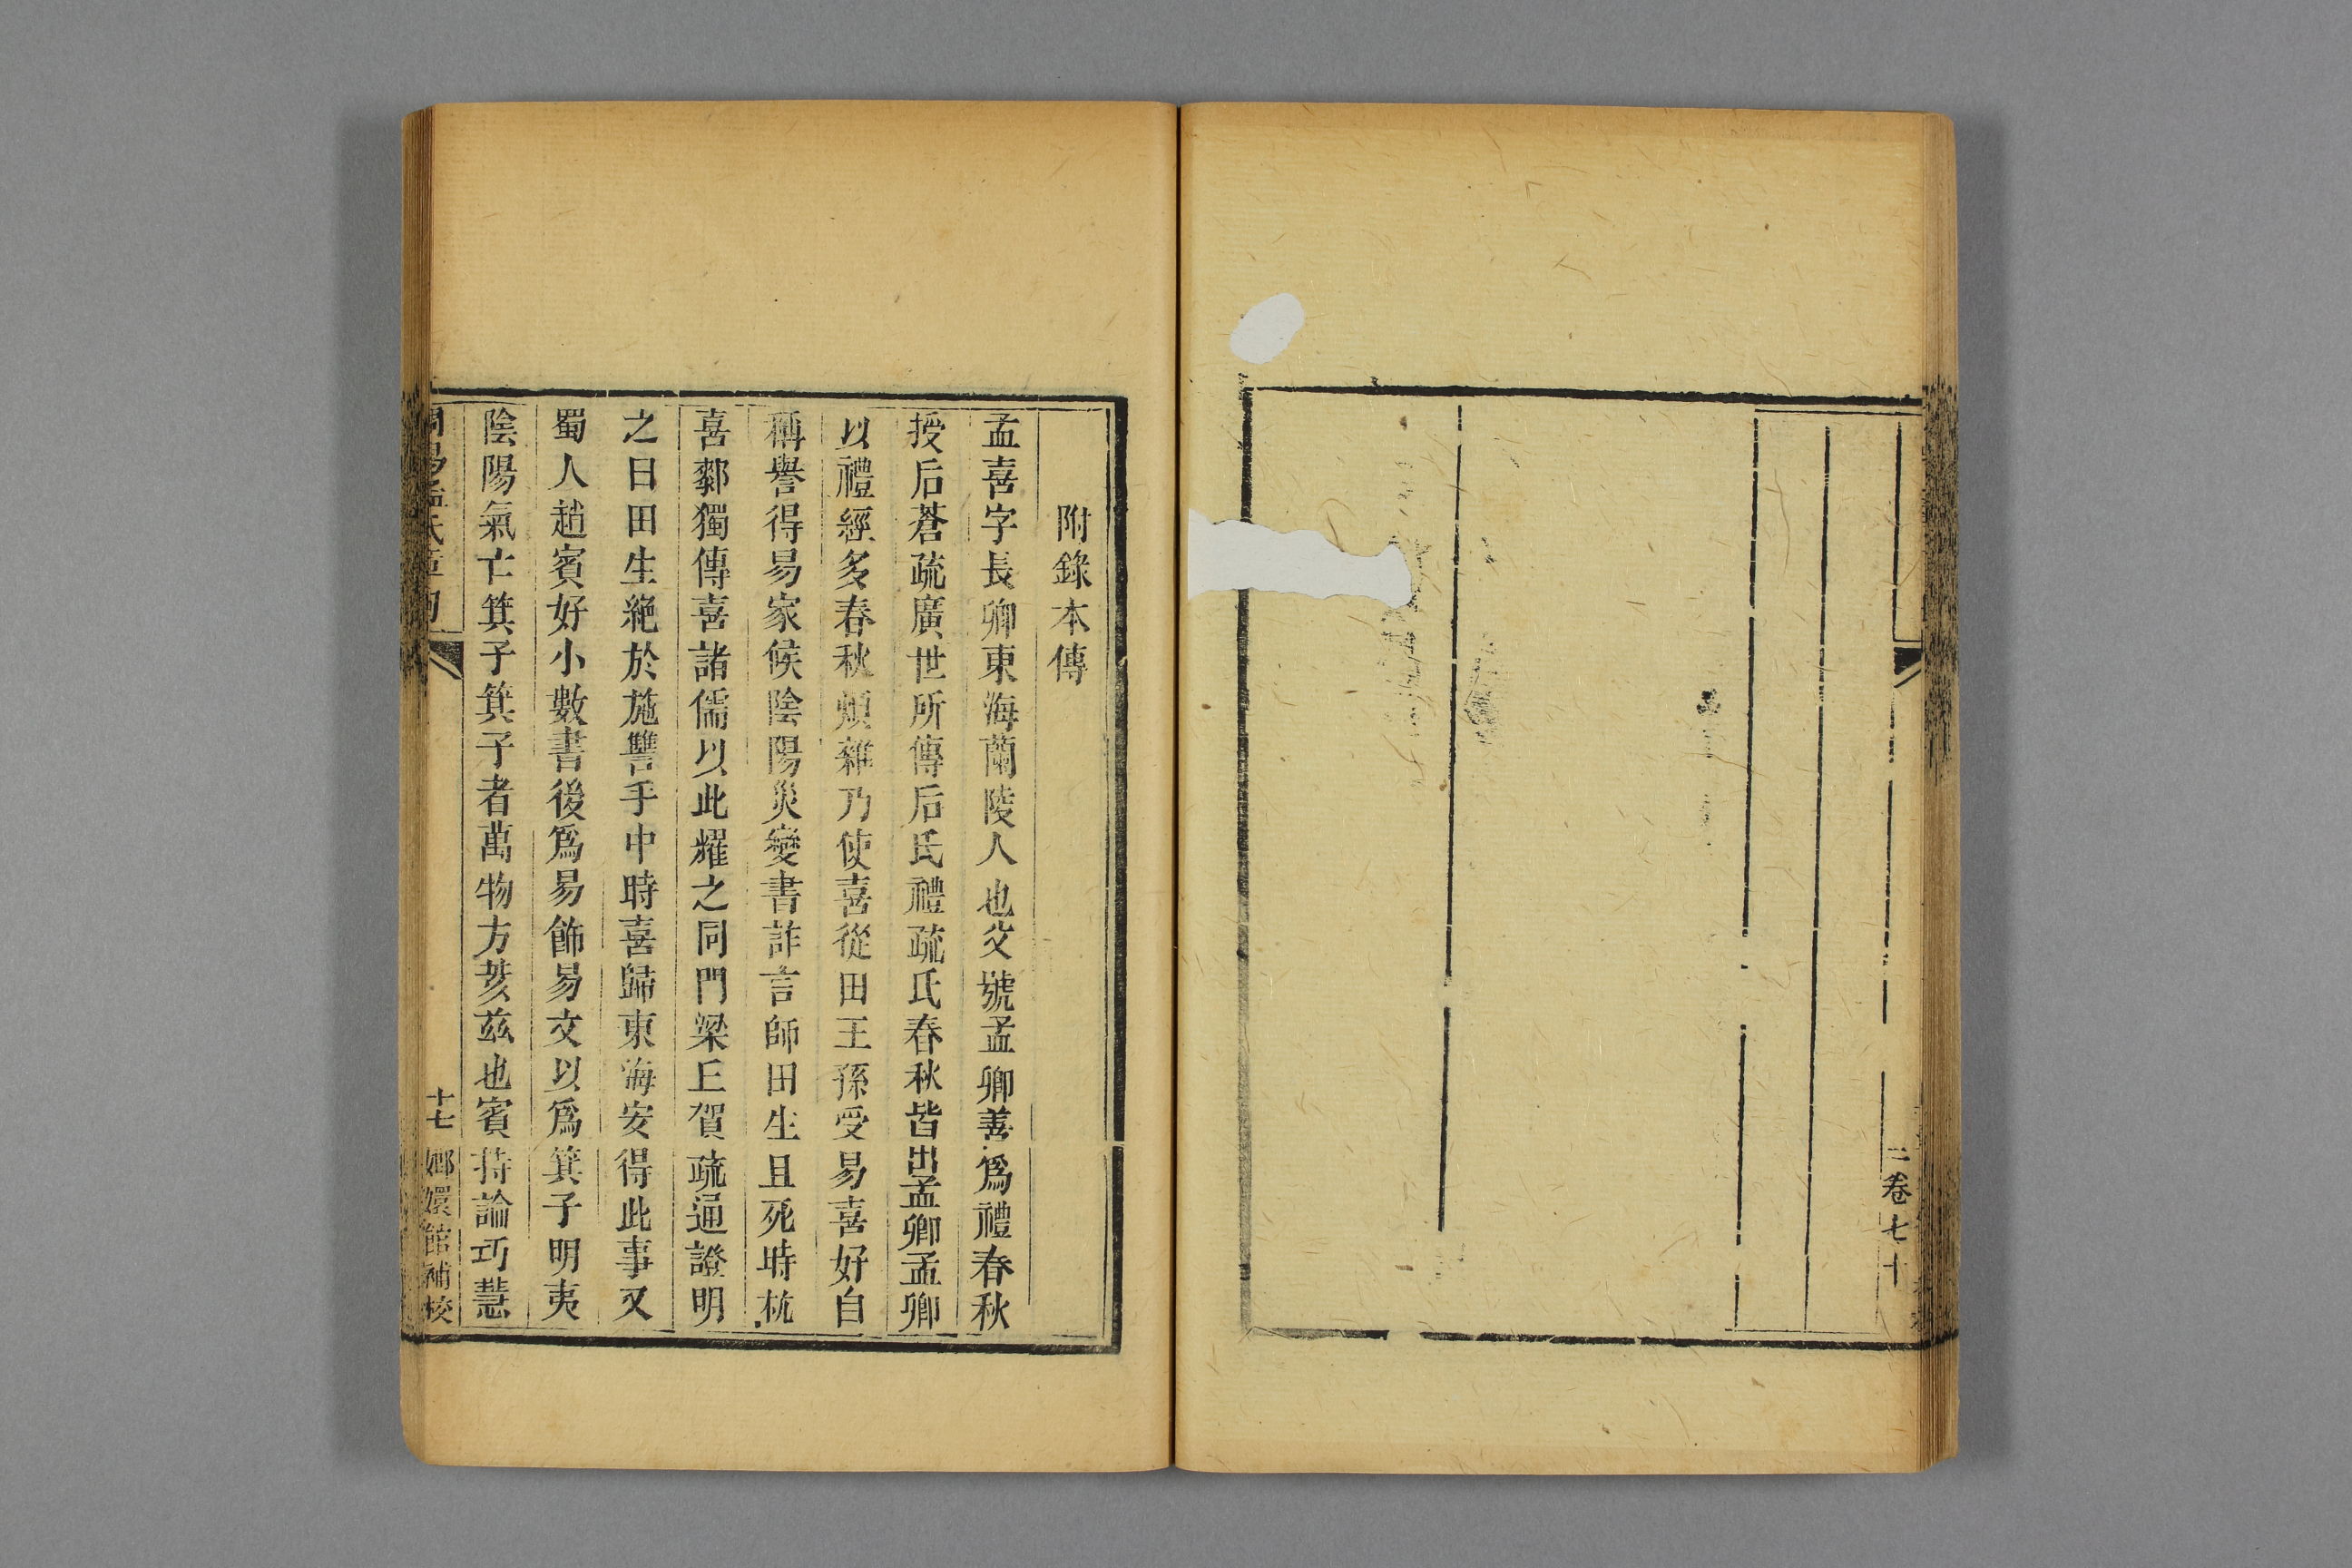 二卷七十
附錄本傳
孟喜字長卿東海蘭陵人也父號孟卿善爲禮春秋
授后蒼疏廣世所傳后氏禮疏氏春秋皆出孟卿孟卿
以禮經多春秋煩雜乃使喜從田王孫受易喜好自
稱譽得易家候陰陽災變書詐言師田生且死時枕
喜厀獨傳喜諸儒以此耀之同門梁丘賀疏通證明
之曰田生絕於施讐手中時喜歸東海安得此事又
蜀人趙賓好小數書後爲易飾易文以爲箕子明夷
陰陽氣亡箕子箕子者萬物方荄茲也賓持論巧慧
周易孟氏章句
十七
嫏嬛館補校